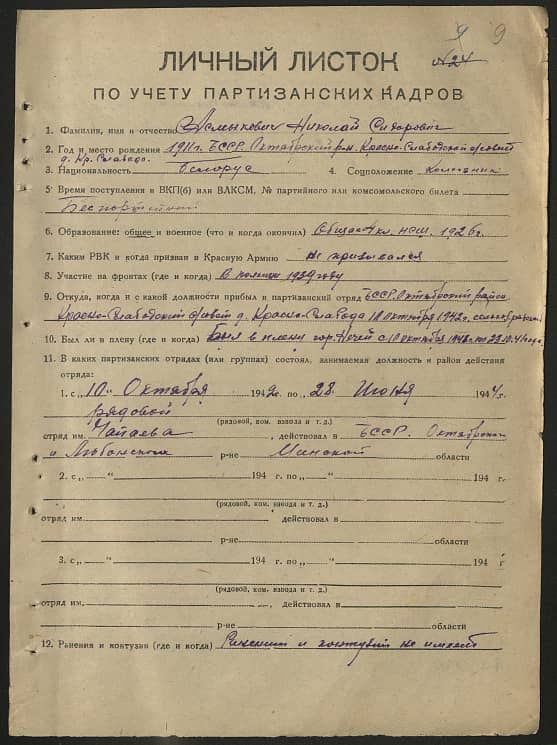 9
№24
ЛИЧНЫЙ ЛИСТОК
ПО УЧЕТУ ПАРТИЗАНСКИХ КАДРОВ
1. Фамилия, имя и отчество Николай Сидорович
2. Год и место рождения 1911 г. БССР. Октябрьский р-н.
д. Кр. Слабода.
3. Национальность Белорус 4. Соцположение
5. Время поступления в ВКП(б) или ВЛКСМ, № партийного или комсомольского билета
Беспартийный
6. Образование: общее и военное (что и когда окончил) кл. 1926 г.
7. Каким РВК и когда призван в Красную Армию не призывался
8. Участие на фронтах (где и когда) В 1939 году
9. Откуда, когда и с какой должности прибыл и партизанский отряд БССР. Октябрьский
д. 10 октября 1942 г.
10. Был ли в плену (где и когда) Был в плену гор.
11. В каких партизанских отрядах (или группах) состоял, занимаемая должность и район действия
отряда:
1. с „10“ Октября 1942 г. по „28“ Июня 1944 г.
рядовой
(рядовой, ком. взвода и т. д.)
отряд им. Чапаева, действовал в БССР. Октябрьском
и Любанском р-не Минской области
2. с „ “ 194 г. по „ “ 194 г.
(рядовой, ком. взвода и т. д.)
отряд им. действовал в
р-не области
3. с „ “ 194 г. по „ “ 194 г
(рядовой, ком. взвода и т. д.)
отряд им. , действовал в
р-не области
12. Ранения и контузии (где и когда) Ранений и контузий не имеет